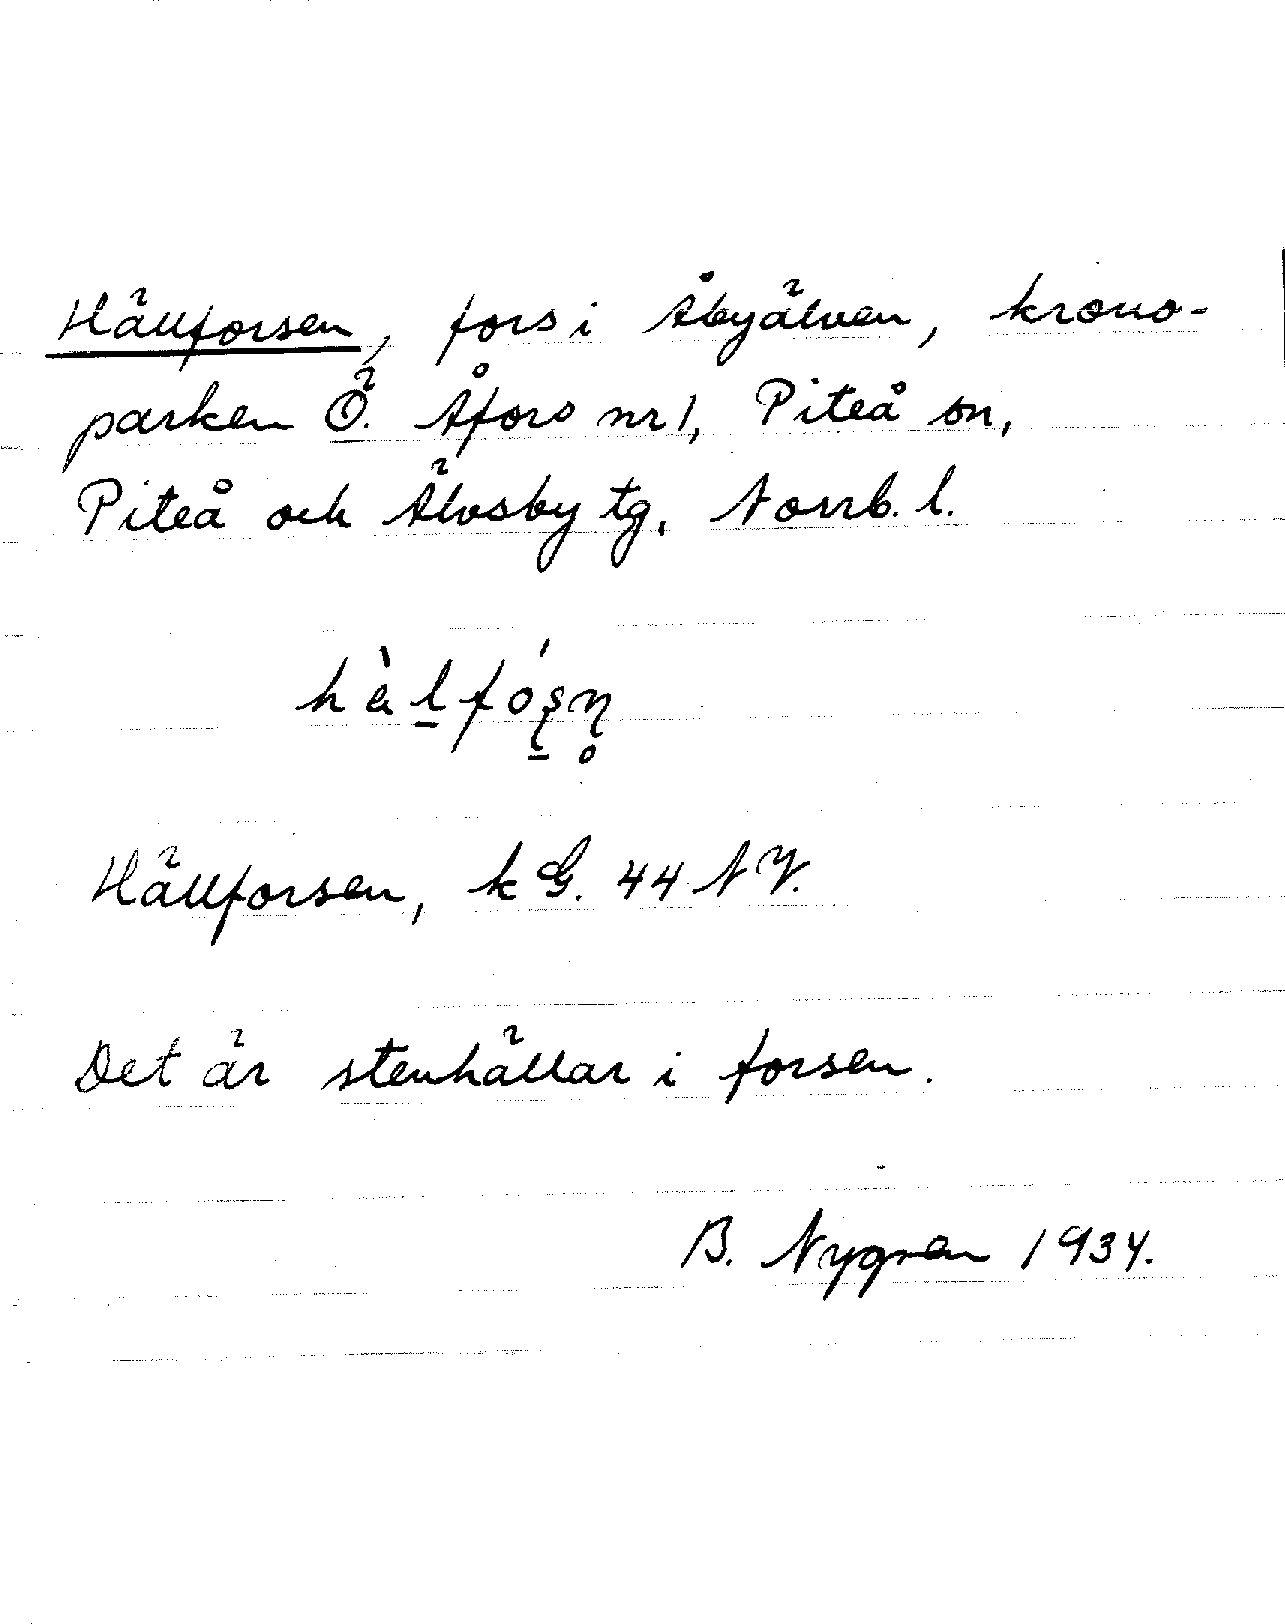 Hällforsen, fors i Åbyälven, krono-
parken Ö. Åfors nr 1, Piteå sn,
Piteå och Älvsby tg, Norrb. l.
hä̀l̠fóʂ̠ɳ̥
Hällforsen, k G. 44 NV.
Det är stenhällar i forsen.
B. Nygren 1934.